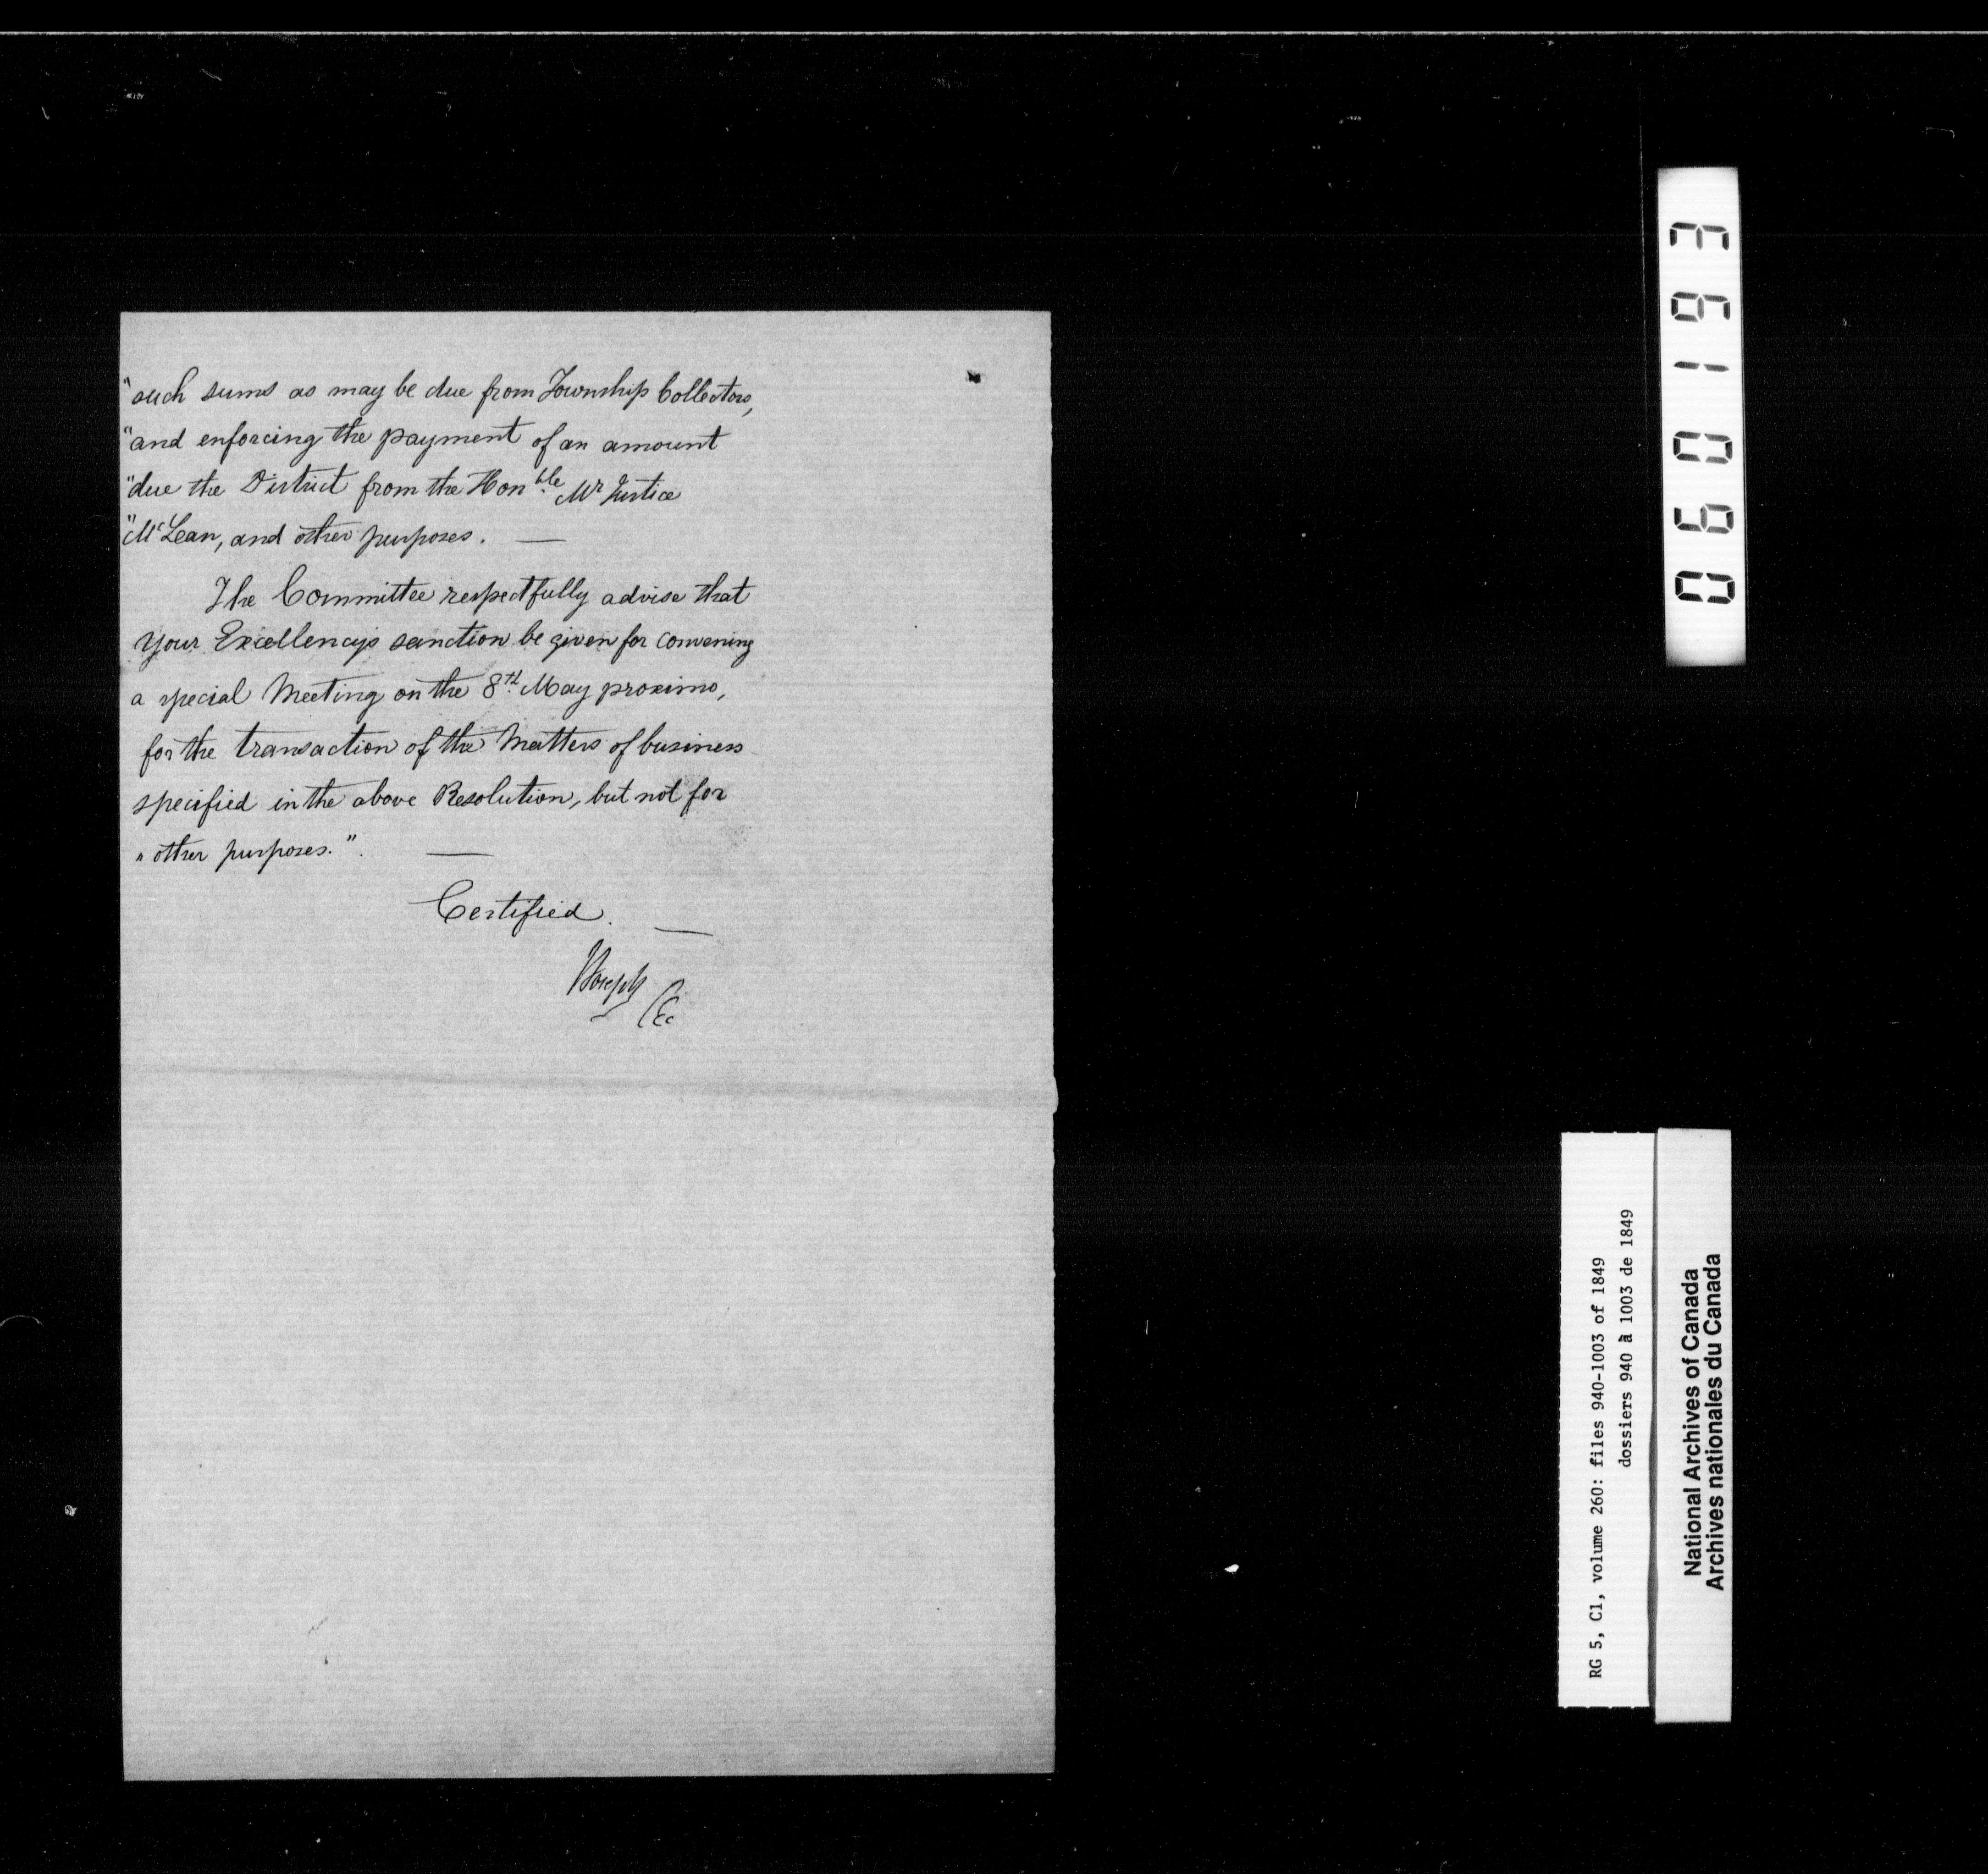 "such sums as may be due from Township Collectors,
"and enforcing the payment of an amount
"due the District from the Hon.ble Mr Justice
"McLean, and other purposes. —
The Committee respectfully advise that
Your Excellency's sanction be given for convening
a special Meeting on the 8th May proximo,
for the transaction of the Matters of business
specified in the above Resolution, but not for
" other purposes." —
Certified. —
Joseph
060193
RG 5, C1, volume 260: files 940-1003 of 1849
dossiers 940 à 1003 de 1849
National Archives of Canada
Archives nationales du Canada